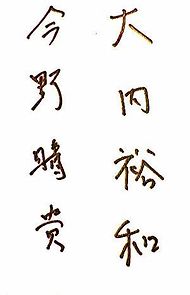 大内裕和
今野晴貴